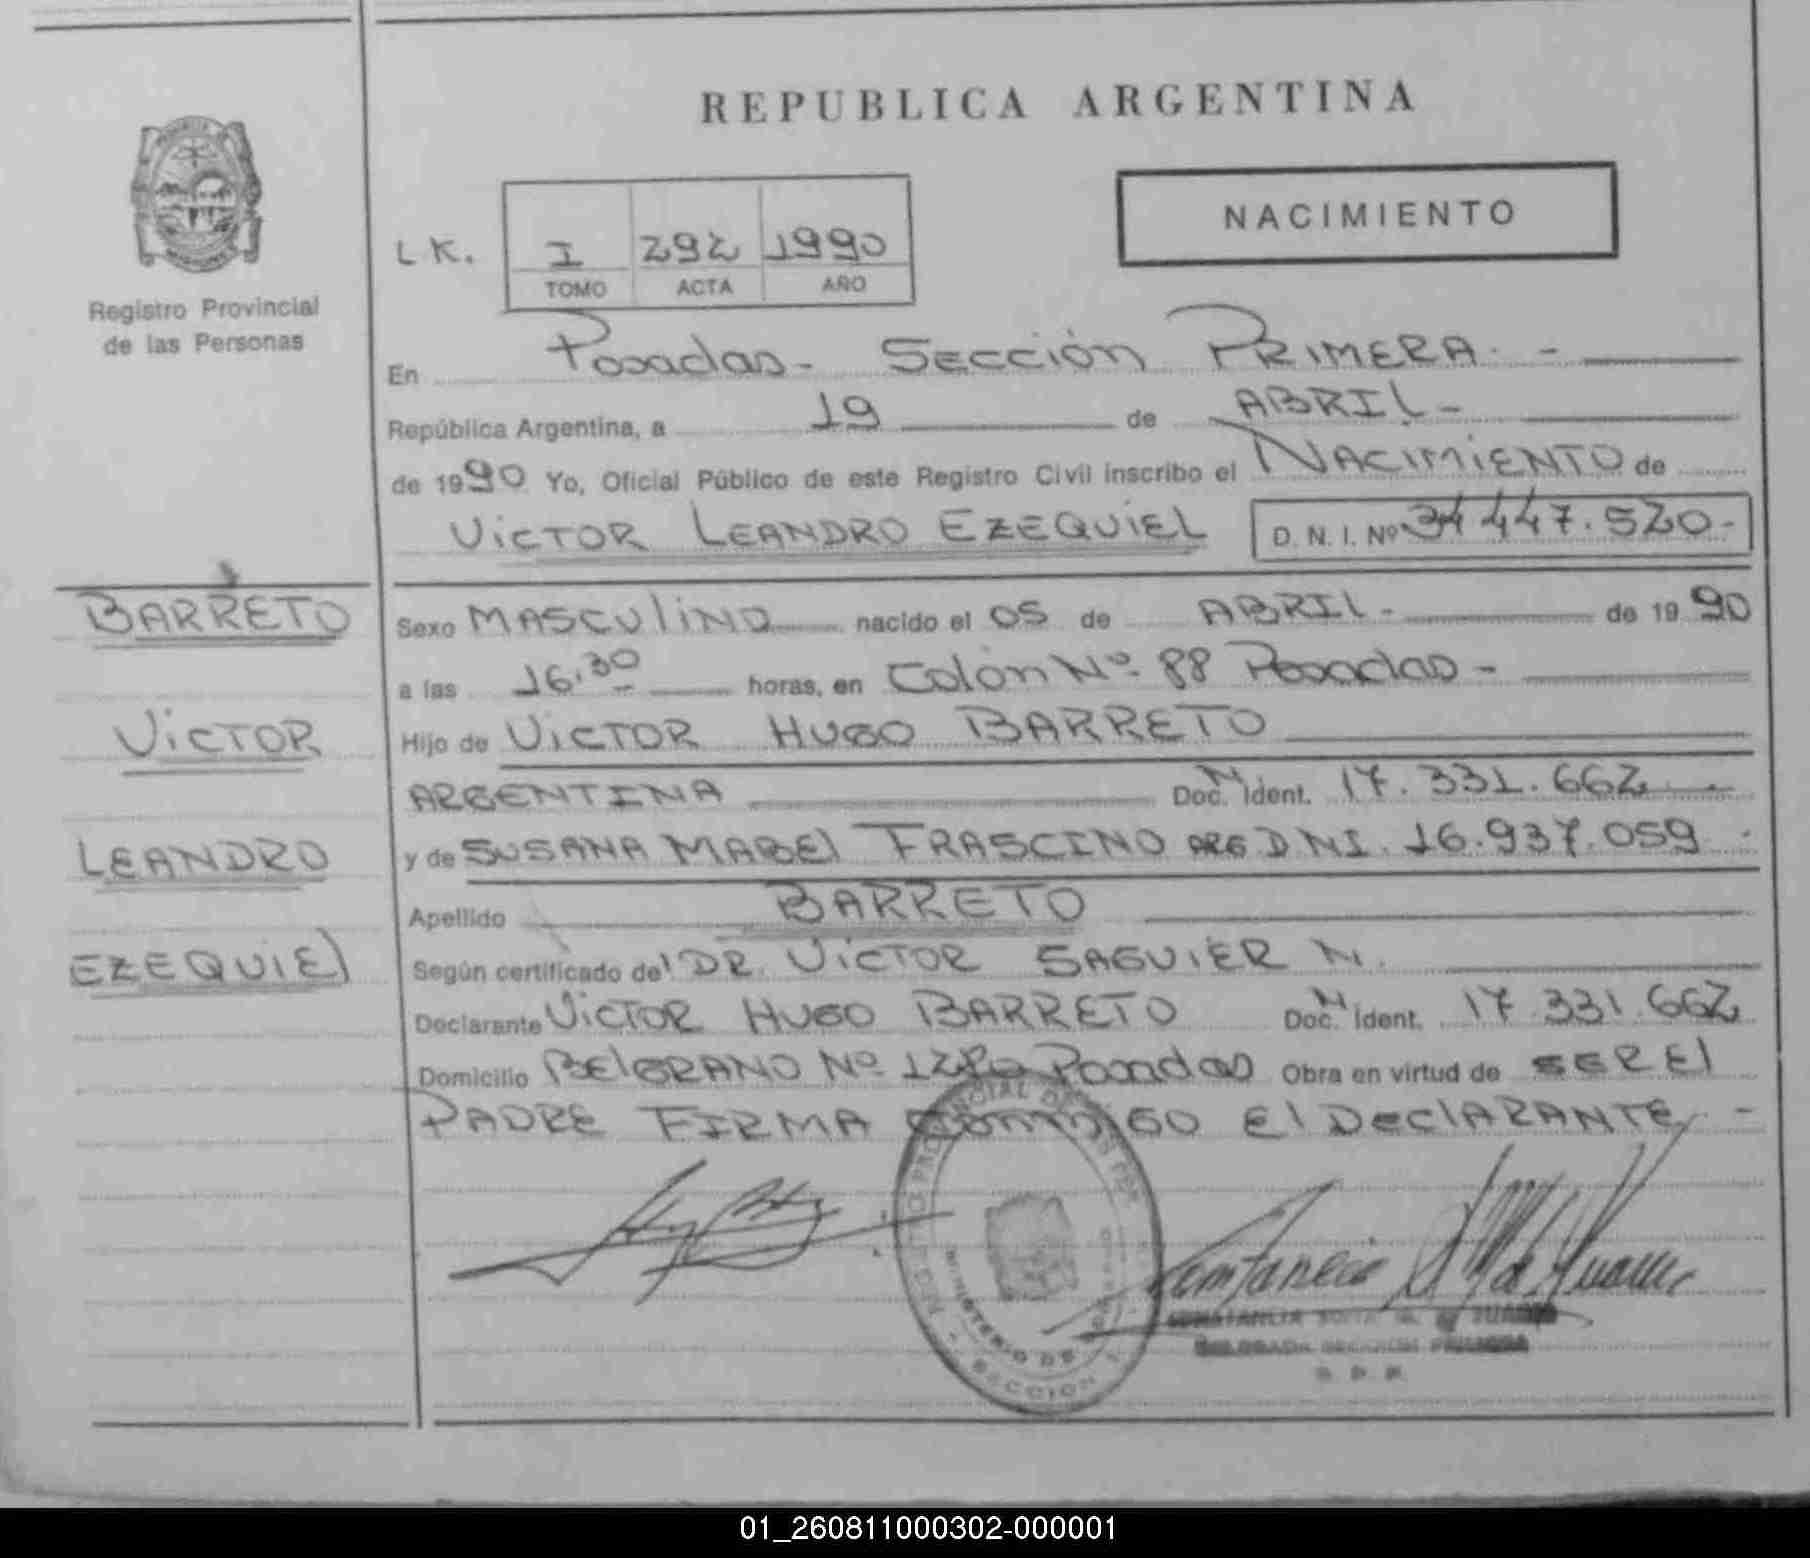 REPUBLICA ARGENTINA
NACIMIENTO
LK. I 292 1990
TOMO ACTA AÑO
Registro Provincial
de las Personas
En Posadas - Sección PRIMERA. -
República Argentina, a 19 de ABRIL -
de 1990 Yo, Oficial Público de este Registro Civil inscribo el NACIMIENTO de
VICTOR LEANDRO EZEQUIEL D. N. I. Nº 34 447.520.-
BARRETO
VICTOR
LEANDRO
EZEQUIEL
Sexo MASCULINO nacido el 05 de ABRIL - de 1990
a las 16.30 horas, en Colón Nº 88 Posadas -
Hijo de VICTOR HUGO BARRETO
ARGENTINA Doc. N Ident. 17.331.662 -
y de SUSANA MABEL FRASCINO ARG DNI. 16.937.059 .
Apellido BARRETO
Según certificado del DR. VICTOR SAGUIER M.
Declarante VICTOR HUGO BARRETO Doc. N Ident. 17.331.662
Domicilio BELGRANO Nº Posadas Obra en virtud de SER El
PADRE FIRMA CONMIGO El DEClARANTE. -
MINISTERIO DE
SECCION
DELEGADA SECCION PRIMERA
01_260811000302-000001